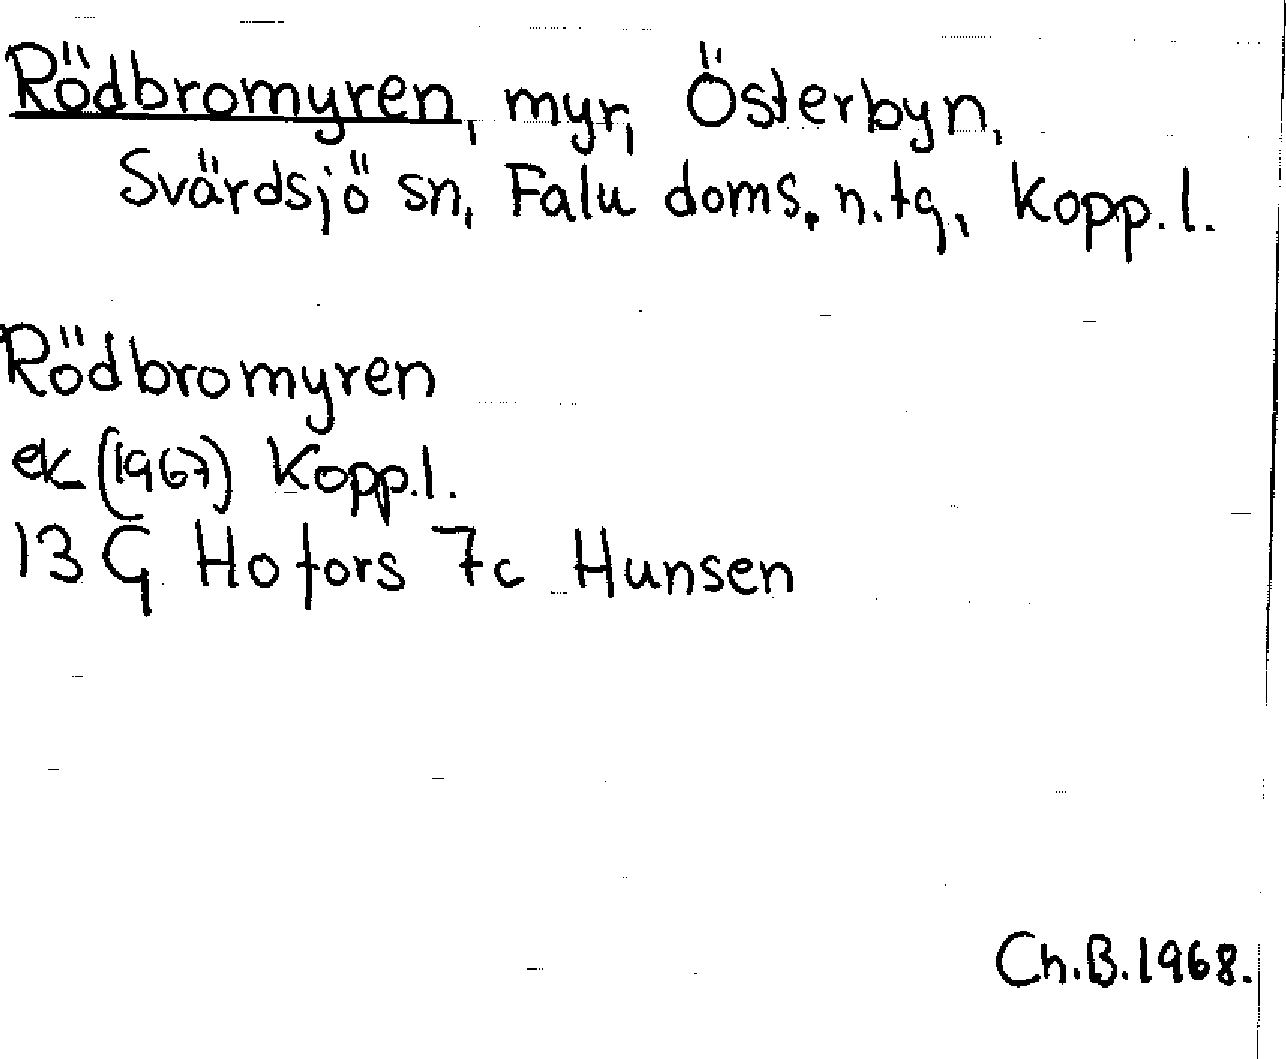 Rödbromyren, myr, Österbyn,
Svärdsjö sn, Falu doms. n. tg, Kopp. l.
Rödbromyren
ek (1967) Kopp. l.
13 G Hofors 7c Hunsen
Ch. B. 1968.